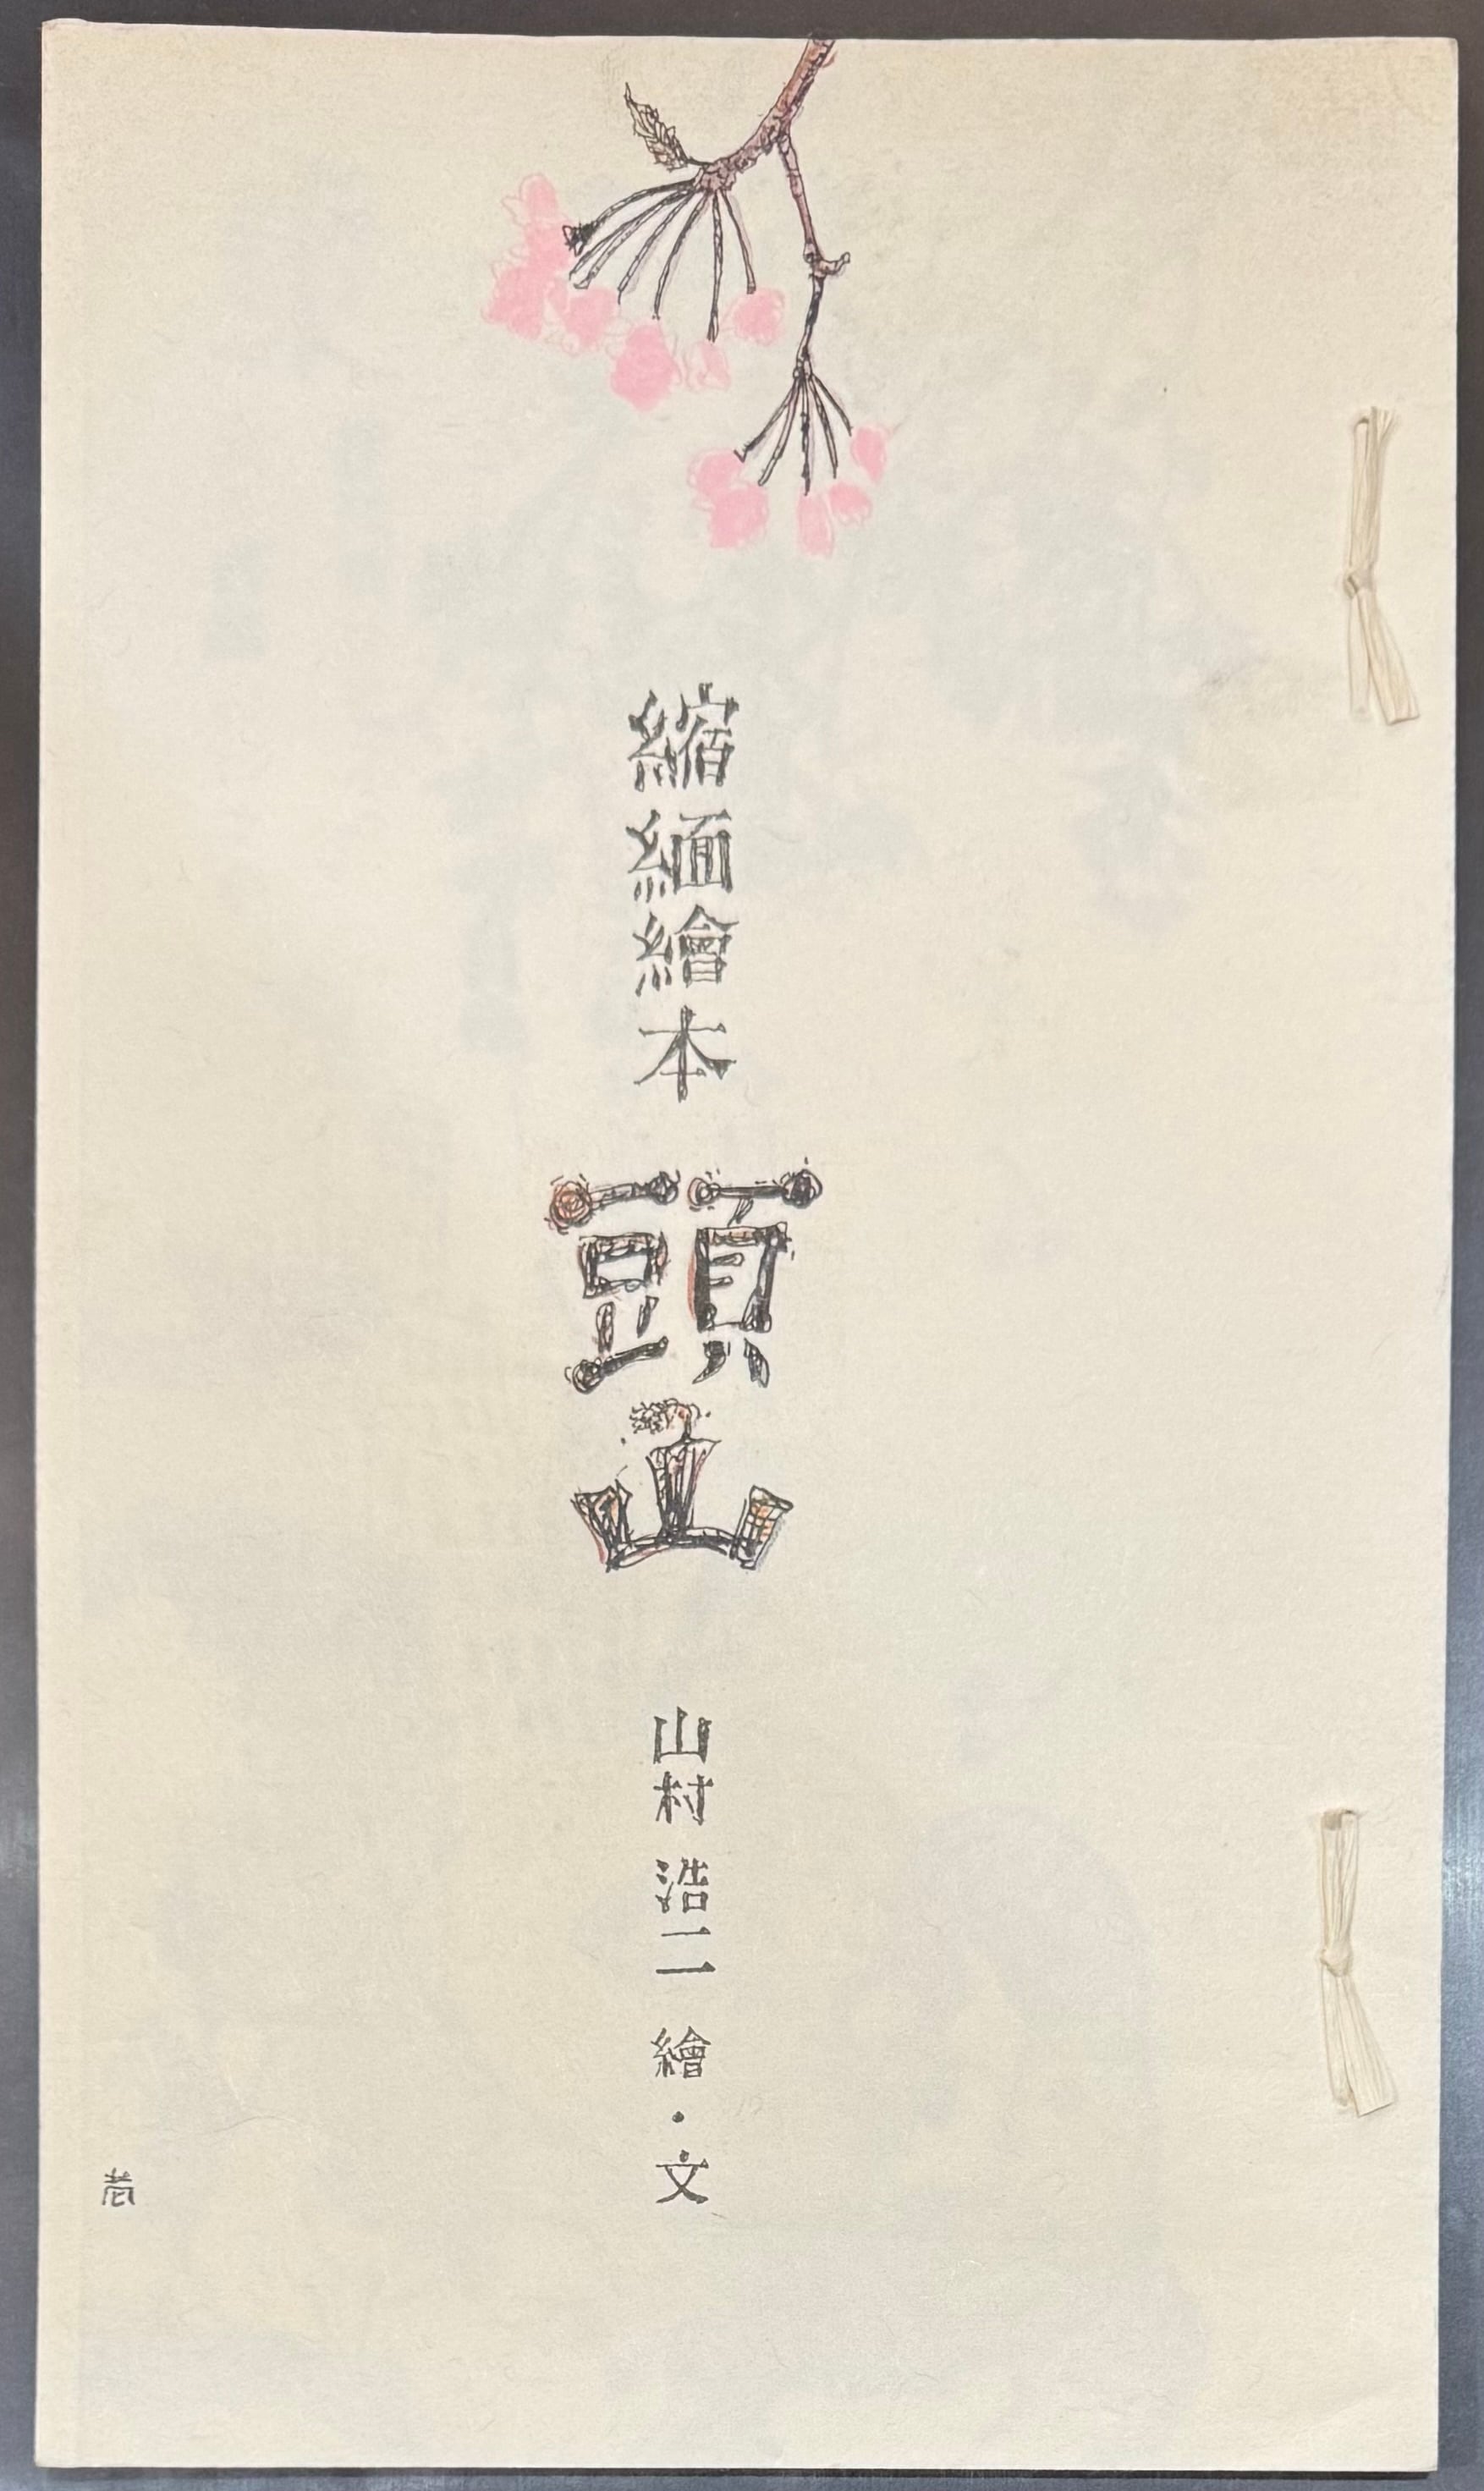 縮緬繪本
頭山
山村 浩二 繪・文